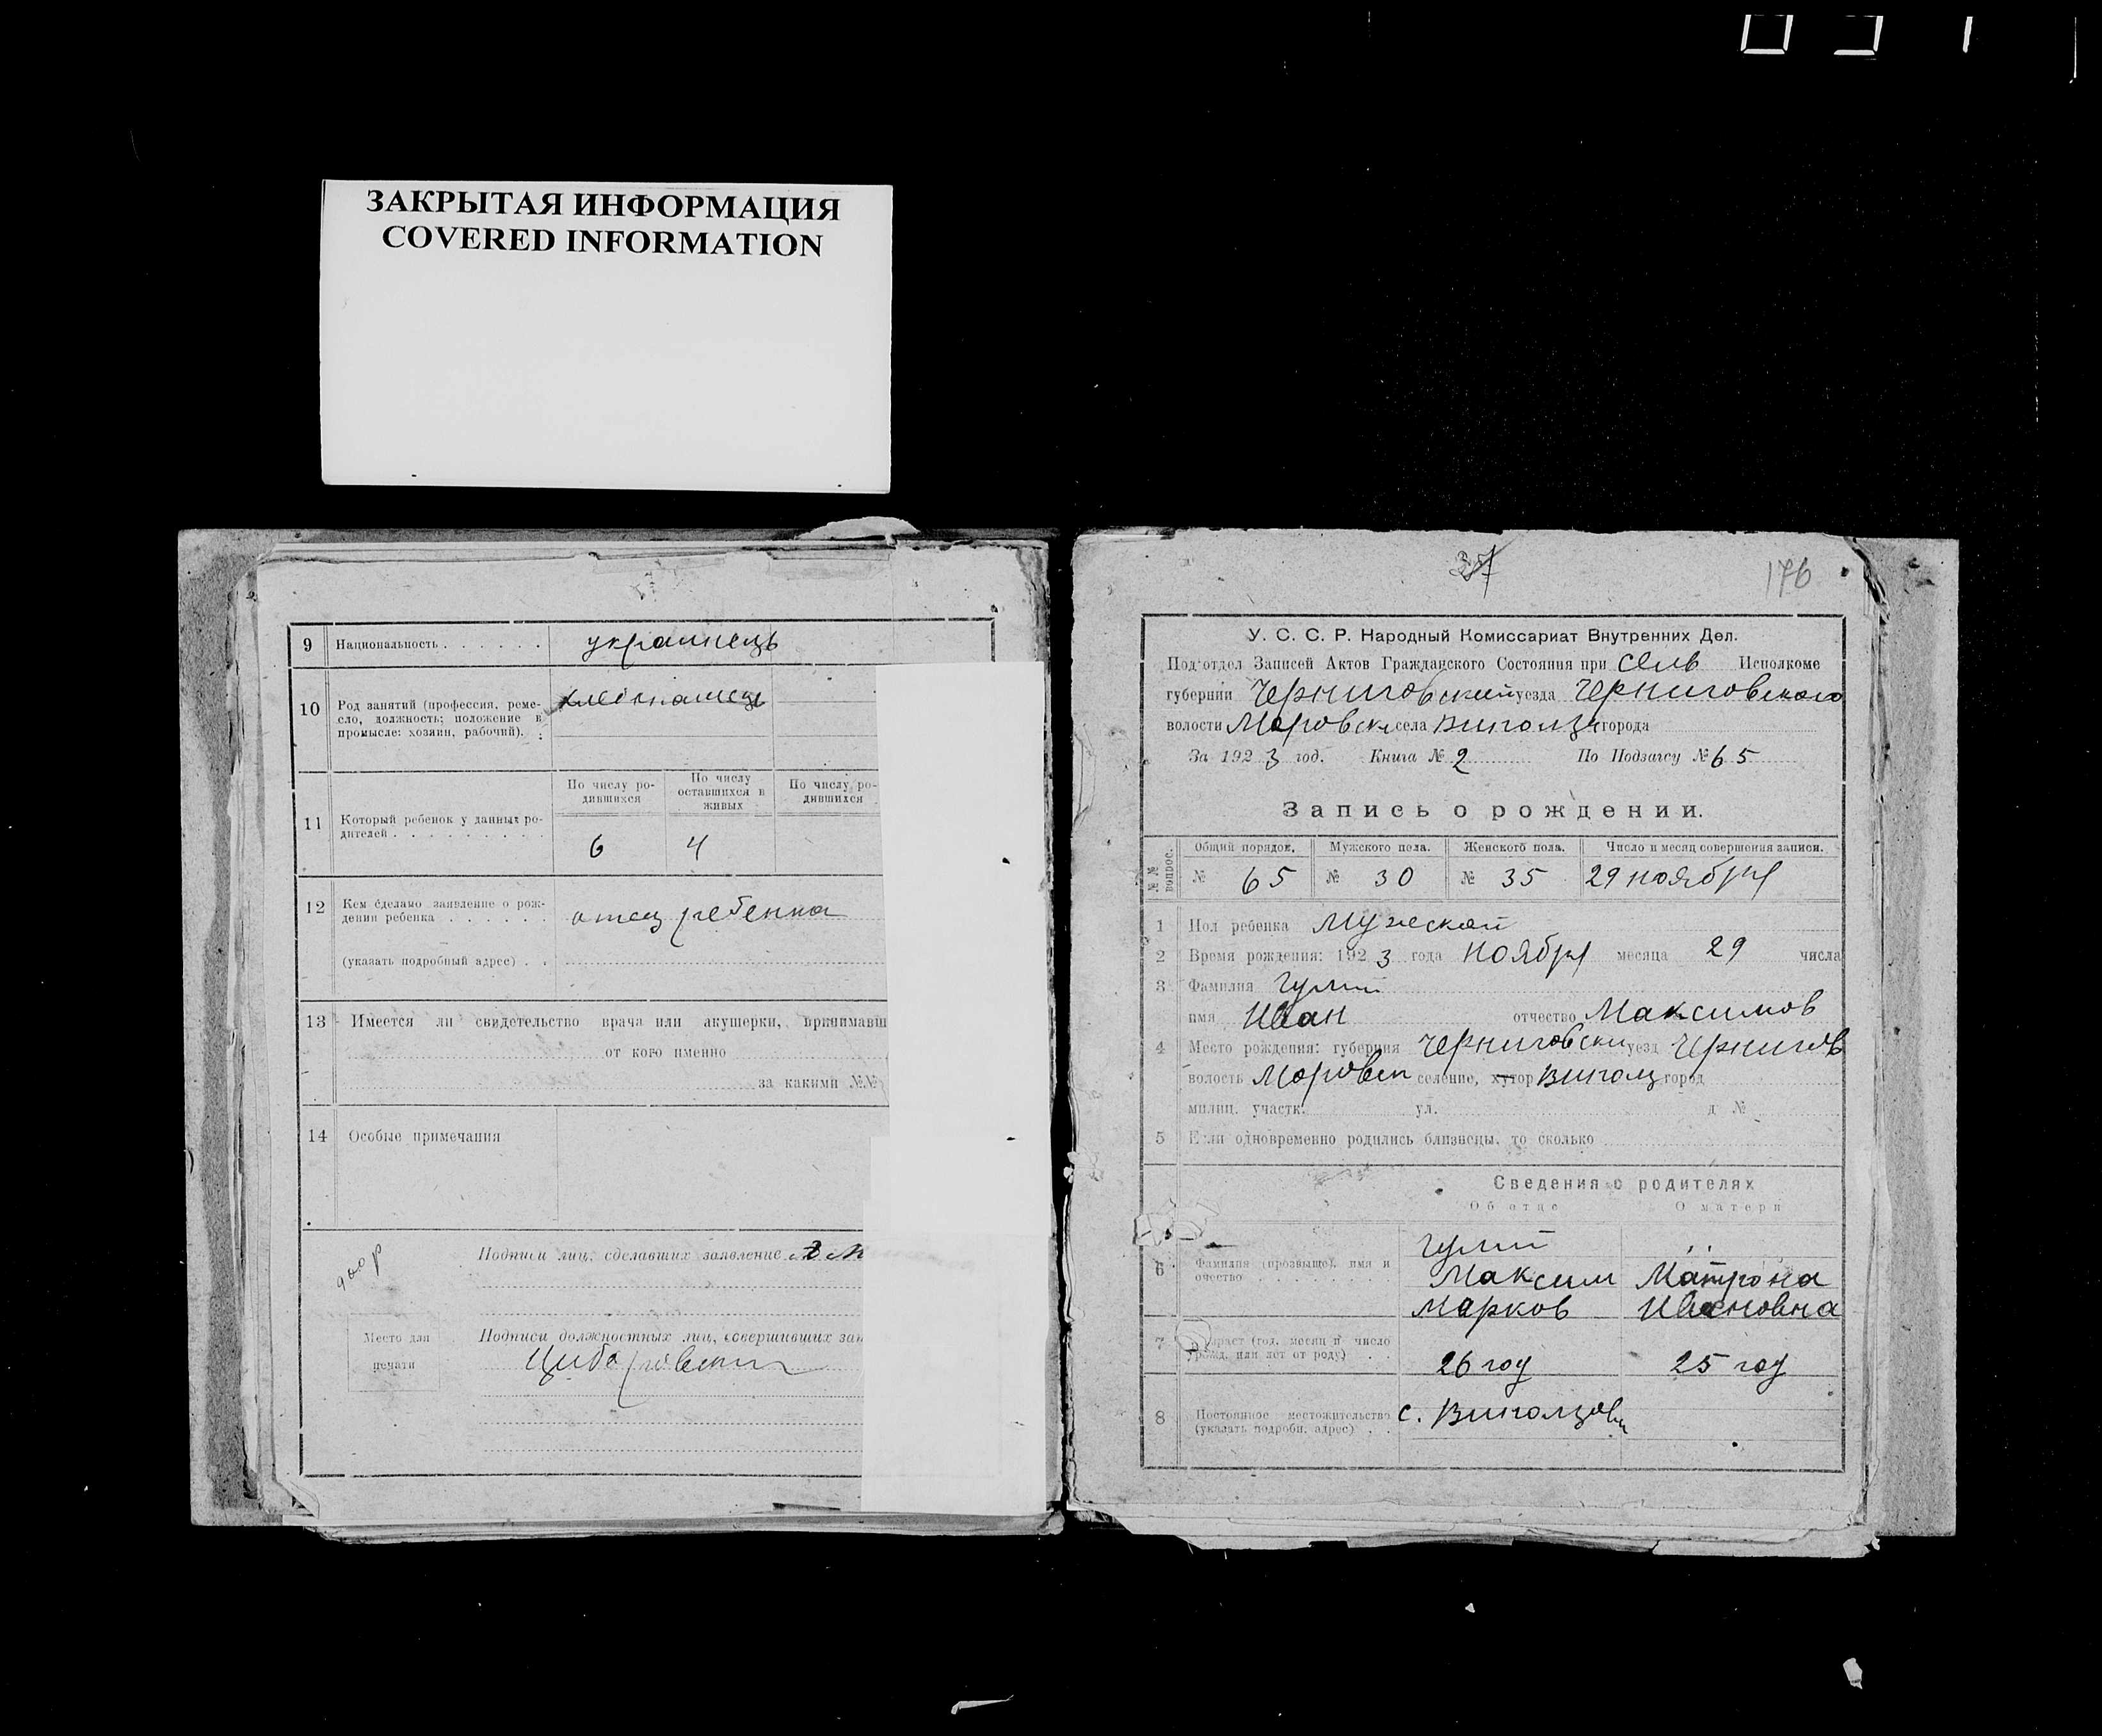 ЗАКРЫТАЯ ИНФОРМАЦИЯ
COVERED INFORMATION
9 Национальность . . . . . . украинець
10 Род занятий (профессия, реме-
сло, должность; положение в
промысле: хозяин, рабочий).
По числу ро-
дившихся
По числу
оставшихся в
живых
По числу ро-
дившихся
11 Который ребенок у данных ро-
дителей . . . . . . . . .
6 4
12 Кем сделано заявление о рож-
дении ребенка . . . . . . отец ребенка
(указать подробный адрес) . .
13 Имеется ли свидетельство врача или акушерки, принимавш
от кого именно
за какими №№
14 Особые примечания
Подписи лиц, сделавших заявление
Место для
печати
Подписи должностных лиц, совершивших зап
37
176
У. С. С. Р. Народный Комиссариат Внутренних Дел.
Под'отдел Записей Актов Гражданского Состояния при Сель Исполкоме
губернии Черниговский уезда Черниговского
волости Моровск села города
За 1923 год. Книга № 2 По Подзагсу № 65
Запись о рождении.
№№ вопрос.
Общий порядок. Мужского пола. Женского пола. Число и месяц совершения записи.
№ 65 № 30 № 35 29 ноября
1 Пол ребенка Мужской
2 Время рождения: 1923 года Ноября месяца 29 числа
3 Фамилия
имя Иван отчество Максимов
4 Место рождения: губерния Черниговски уезд Чернигов
волость Моровск селение, хутор город
милиц. участк. ул. д №
5 Если одновременно родились близнецы, то сколько
Сведения о родителях
Об отце О матери
6 Фамилия (прозвище), имя и
очество . . . . . . .
Максим Матрона
Марков Ивановна
7 Возраст (год, месяц и число
рожд. или лет от роду) . . . 26 год 25 год
8 Постоянное местожительство с.
(указать подробн. адрес) . .